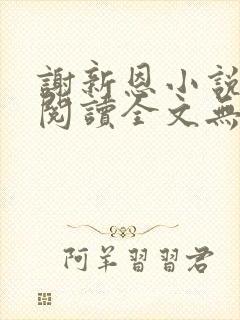 謝新恩小說
閱讀全文無
阿羊習習君